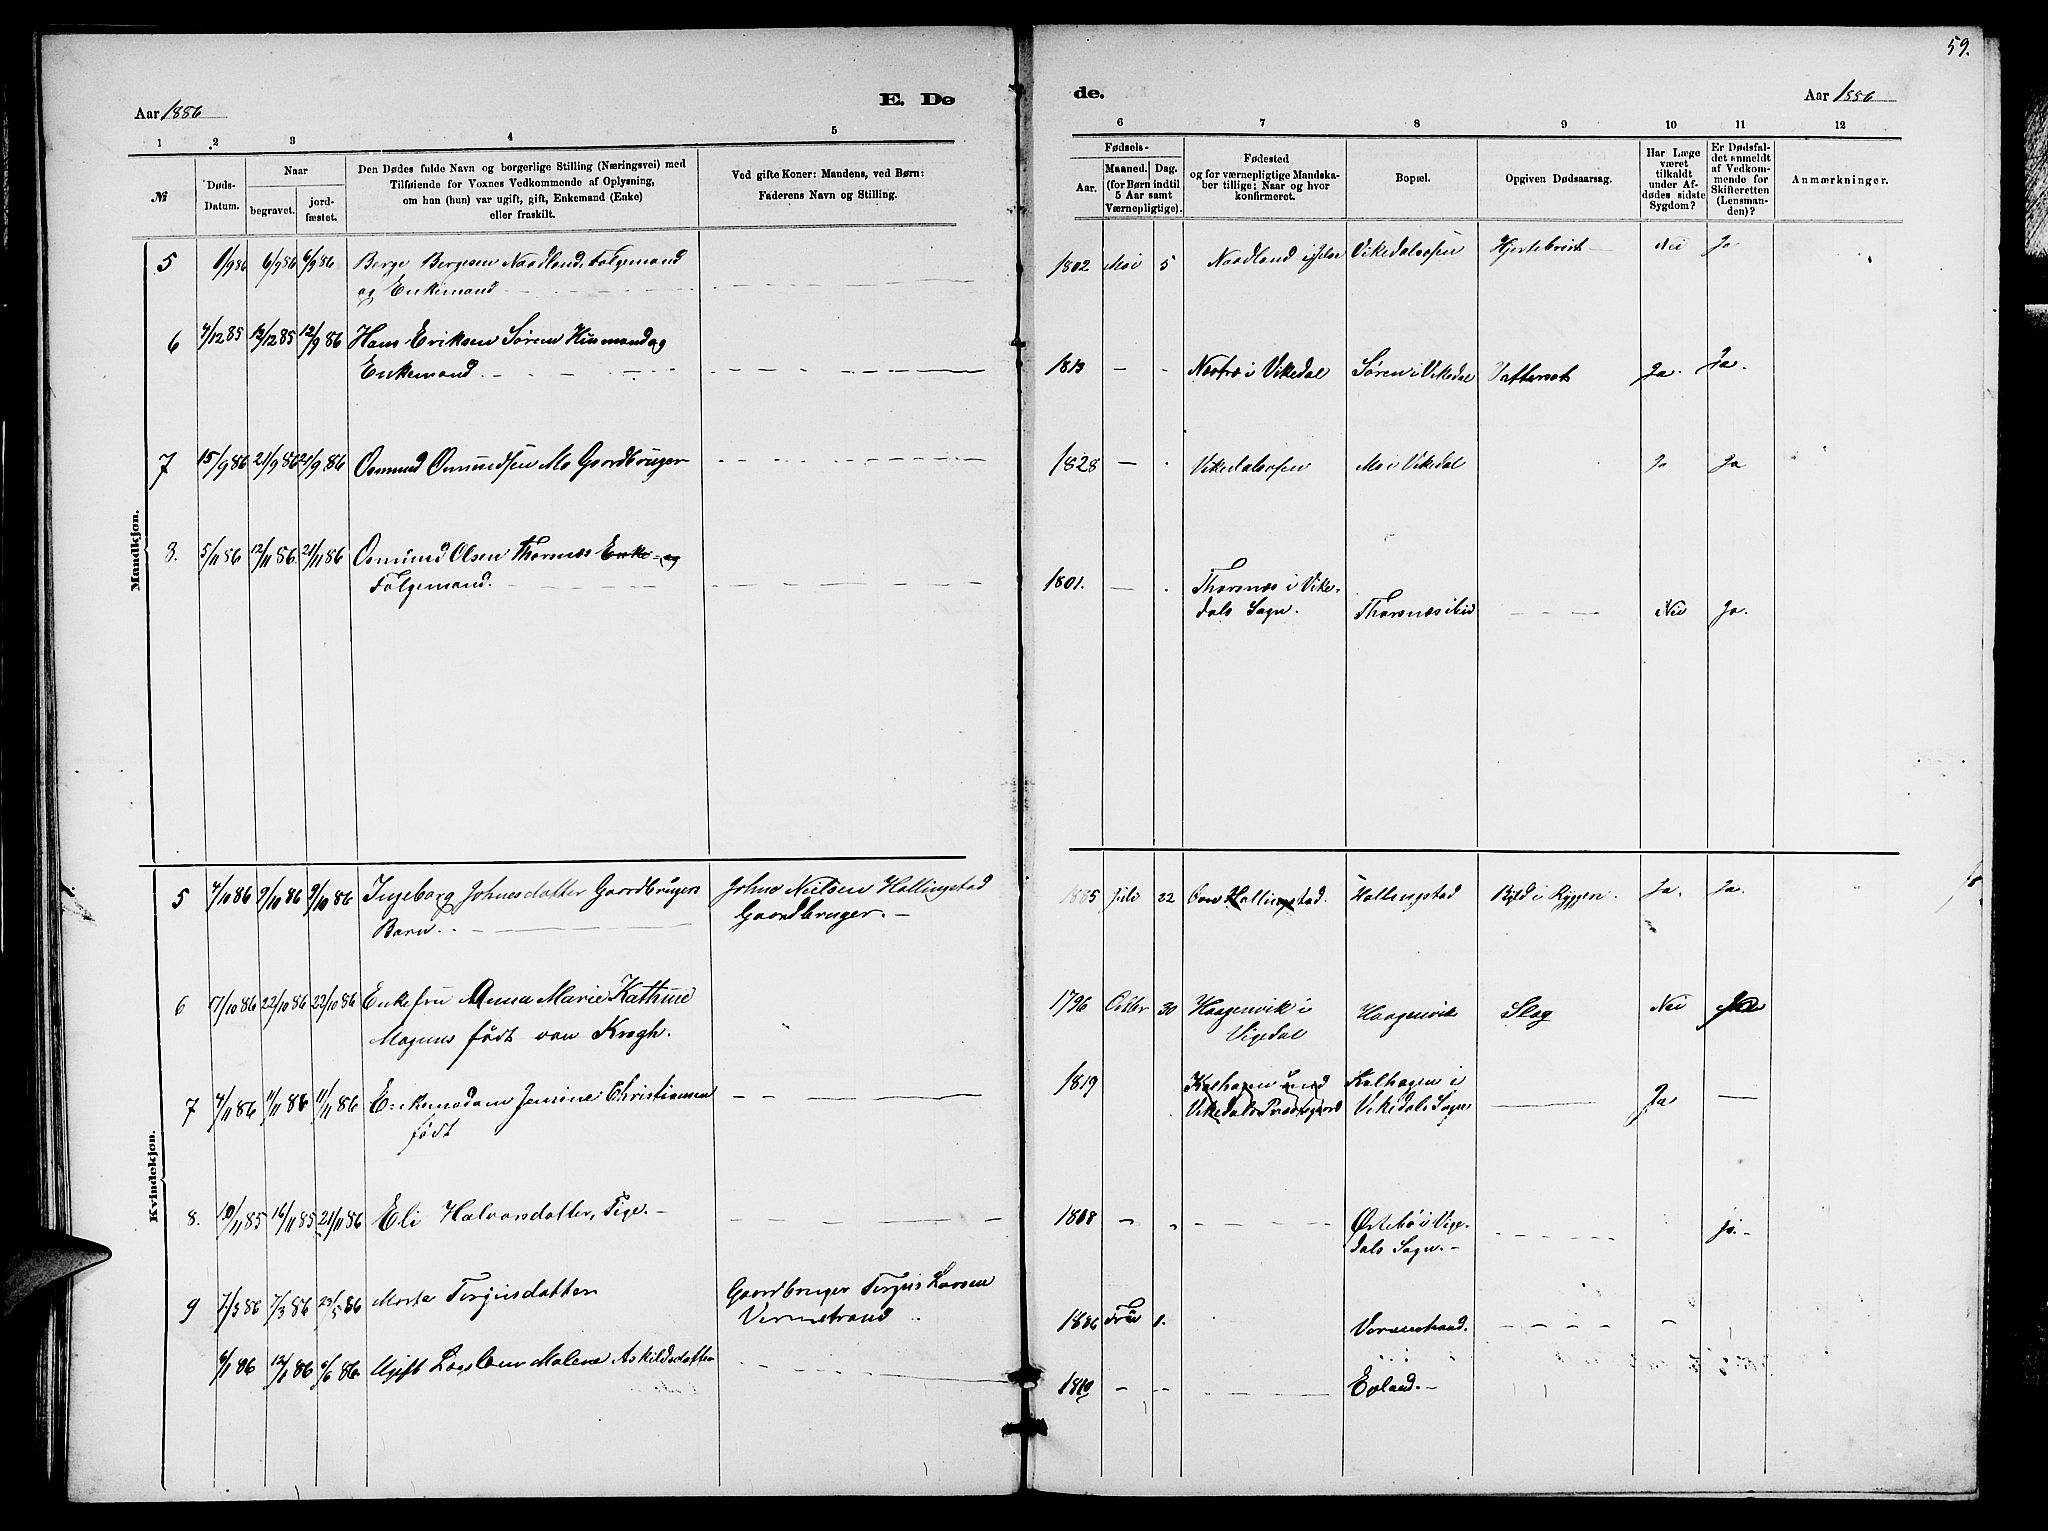 59.
Aar 1886
E. Dø
de.
Aar 1886
1 2 3 4 5
6 7 8 9 10 11 12
№
Døds-
Datum.
Naar
begravet.
jord-
fæstet.
Den Dødes fulde Navn og borgerlige Stilling (Næringsvei) med
Tilføiende for Voxnes Vedkommende af Oplysning,
om han (hun) var ugift, gift, Enkemand (Enke)
eller fraskilt.
Ved gifte Koner: Mandens, ved Børn:
Faderens Navn og Stilling.
Fødsels-
Aar.
Maaned.
Dag.
(for Børn indtil
5 Aar samt
Værnepligtige).
Fødested
og for værnepligtige Mandska-
ber tillige: Naar og hvor
konfirmeret.
Bopæl.
Opgiven Dødsaarsag.
Har Læge
været
tilkaldt
under Af-
dødes sidste
Sygdom?
Er Dødsfal-
det anmeldt
af Vedkom-
mende for
Skifteretten
(Lensman-
den)?
Anmærkninger.
Mandkjøn.
5 1/9 86 6/9 86 6/9 86 Berge Bergesen Naadland, Følgemand 1802 Mai 5 Naadland i Jelse Vikedalsosen Hjertebrist Nei Ja
og Enkemand
6 4/12 85 12/12 85 12/9 86 Hans Eriksen Søren Husmand og
Enkemand. 1813 i Vikedal Søren i Vikedal Vattersot Ja. Ja.
7 15/9 86 21/9 86 21/9 86 Osmund Osmundsen Mo Gaardbruger 1828 Vikedalsosen Mo i Vikedal Ja Ja
8. 5/11 86 12/11 86. 21/11 86 Osmund Olsen Thorsnæs Enke- og
Følgemand. 1801. Thorsnæs i Vike-
dals Sogn. Thorsnæs Nei Ja.
Kvindekjøn.
5 4/10 86 9/10 86 9/10 86 Ingeborg Johnesdatter Gaardbrugers Johne Nielsen Hallingstad 1885 Juli 22 Hallingstad. Hallingstad Byld i Ryggen. Ja. Ja.
Barn. Gaardbruger.
6 17/10 86 22/10 86 22/10 86 Enkefru Anna Marie Kathrine 1796 Octbr 30 Haagenvik i Haagenvik Slag Nei
Magnus født von Krogh. Vigedal
7 4/11 86 11/11 86 11/11 86 Enkemadam Jensine Christiansen 1819 Kalhagen und Kalhagen i Ja
født Vikedals Præstegaard Vikedals Sogn
8. 10/11 85 16/11 85 21/11 86 Eli Halvorsdatter, Tige. 1808 Østebø i Vige-
dals Sogn. Ja.
9 7/3 86 7/3 86 23/5 86 Marta Terjusdatter Gaardbruger Terjus Larsen
1886 1. Voramstrand.
6/1 86 12/1 86 6/6 86. Ugift Lægslem Malene Askildsdatter 1810 Øvland.